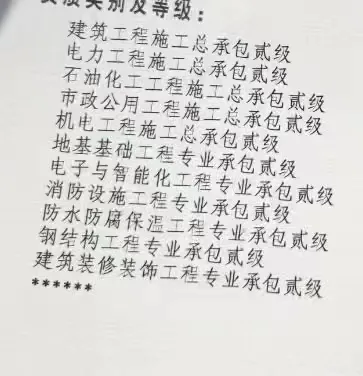 资质类别及等级：
建筑工程施工总承包贰级
电力工程施工总承包贰级
石油化工工程施工总承包贰级
市政公用工程施工总承包贰级
机电工程施工总承包贰级
地基基础工程专业承包贰级
电子与智能化工程专业承包贰级
消防设施工程专业承包贰级
防水防腐保温工程专业承包贰级
钢结构工程专业承包贰级
建筑装修装饰工程专业承包贰级
******